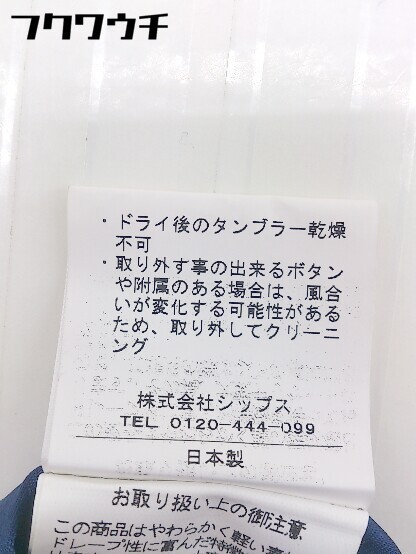 フクワウチ
・ドライ後のタンブラー乾燥
不可
・取り外す事の出来るボタン
や附属のある場合は、風合
いが変化する可能性がある
ため、取り外してクリーニ
ング
株式会社シップス
TEL 0120-444-099
日本製
お取り扱い上の御注意
この商品はやわらかく軽い
ドレープ性に富んだ特徴